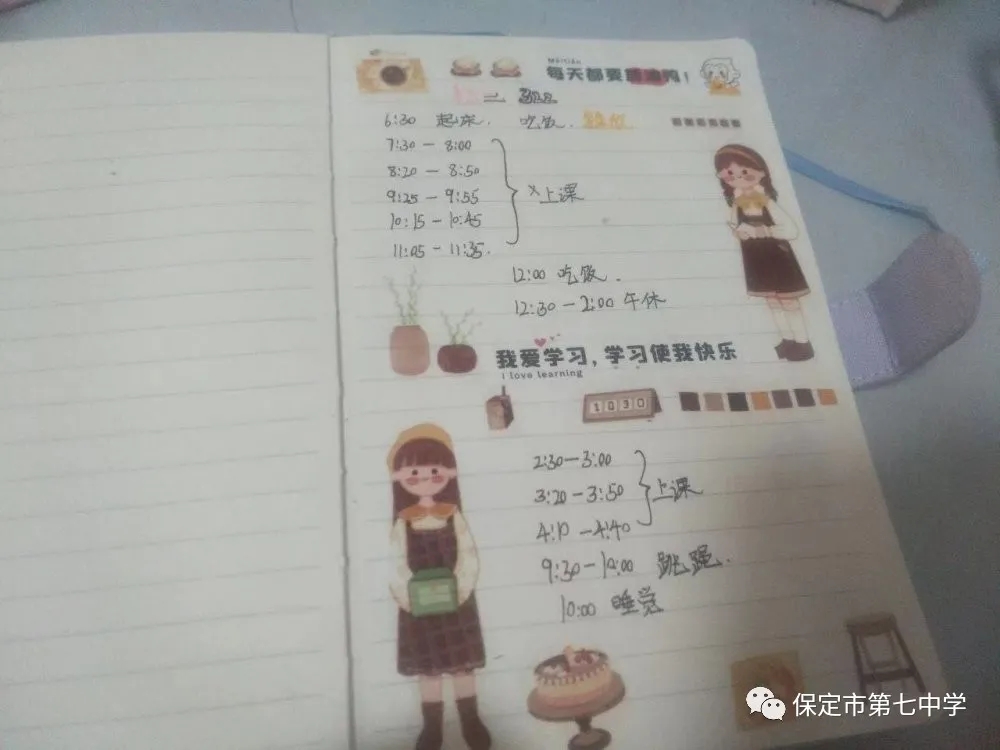 MeiTian
每天都要 鸭！
二
6:30 起床. 吃饭.
7:30 — 8:00
8:20 — 8:50
9:25 — 9:55
10:15 — 10:45
11:05 — 11:35.
上课
12:00 吃饭.
12:30 — 2:00 午休
我爱学习，学习使我快乐
i love learning
1030
2:30 — 3:00
3:20 — 3:50
4:10 — 4:40
上课
9:30 — 10:00 跳绳.
10:00 睡觉
保定市第七中学